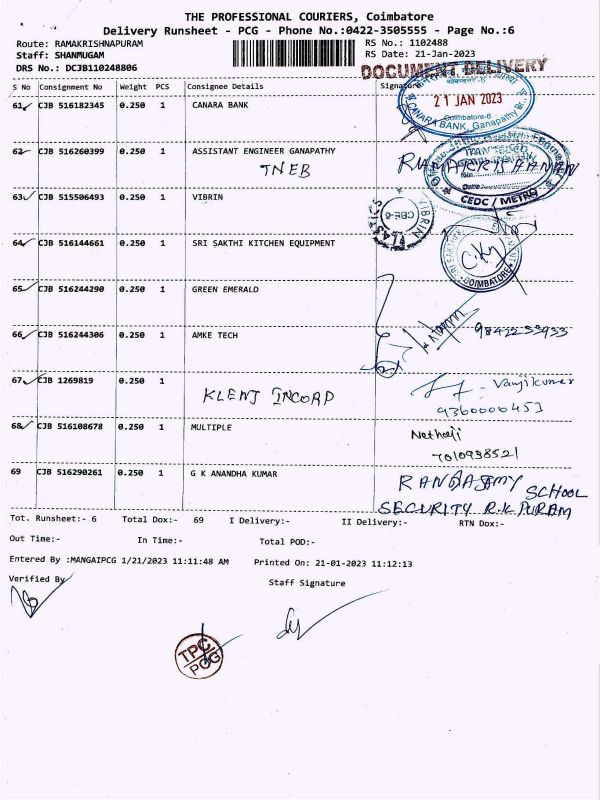 THE PROFESSIONAL COURIERS, Coimbatore
Delivery Runsheet - PCG - Phone No.:0422-3505555 - Page No.:6
Route: RAMAKRISHNAPURAM RS No.: 1102488
Staff: SHANMUGAM RS Date: 21-Jan-2023
DRS No.: DCJB110248806 DOCUMENT DELIVERY
S No Consignment No Weight PCS Consignee Details Signature
61 CJB 516182345 0.250 1 CANARA BANK
21 JAN 2023
Coimbatore-6
CANARA BANK, Ganapathy Br.
62 CJB 516260399 0.250 1 ASSISTANT ENGINEER GANAPATHY
TNEB RAMAKRISHANAN
CEDC / METRO
63 CJB 515506493 0.250 1 VIBRIN
VIBRIN
CBE-6
64 CJB 516144661 0.250 1 SRI SAKTHI KITCHEN EQUIPMENT
COIMBATORE
65 CJB 516244290 0.250 1 GREEN EMERALD
66 CJB 516244306 0.250 1 AMKE TECH 9842233933
67 CJB 1269819 0.250 1
KLENT INCORP - Vanjikumar
9360006453
68 CJB 516108678 0.250 1 MULTIPLE Nethaji
7010938521
69 CJB 516290261 0.250 1 G K ANANDHA KUMAR
SCHOOL
SECURITY R.K PURAM
Tot. Runsheet:- 6 Total Dox:- 69 I Delivery:- II Delivery:- RTN Dox:-
Out Time:- In Time:- Total POD:-
Entered By :MANGAIPCG 1/21/2023 11:11:48 AM Printed On: 21-01-2023 11:12:13
Verified By Staff Signature
TPC
PCG